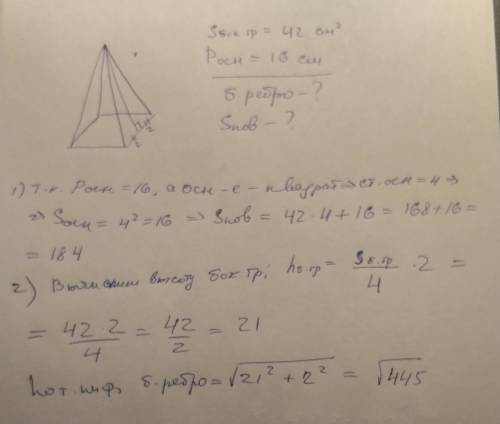 Sбок.гр = 42 см²
Pосн = 16 см
б.ребро - ?
Sпов - ?
2
2
1) т.к. Pосн = 16, а осн-е - квадрат ⇒ ст.осн = 4 ⇒
⇒ Sосн = 4² = 16 ⇒ Sпов = 42 · 4 + 16 = 168 + 16 =
= 184
2) Вычислим высоту бок.гр: hб.гр = Sб.гр/4 · 2 =
= 42 · 2/4 = 42/2 = 21
По т. Пиф, б.ребро = √21² + 2² = √445